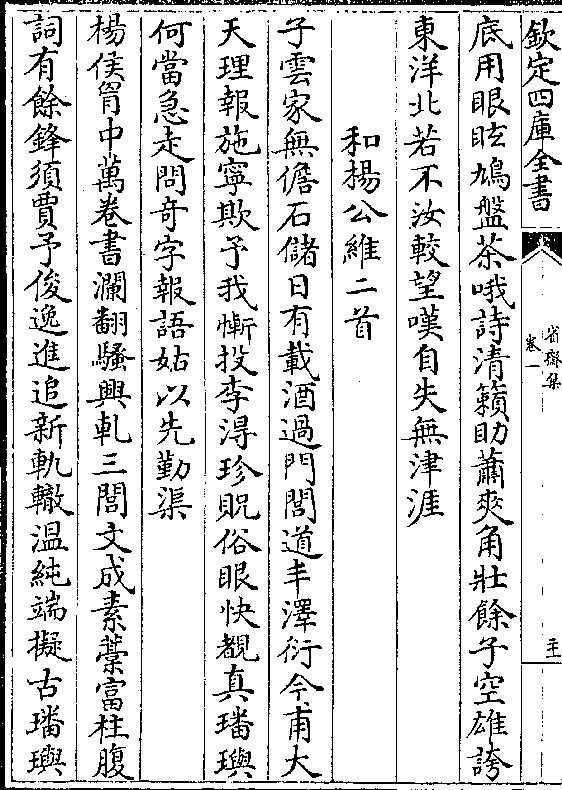 欽定四庫全書
省齋集
卷一
主
底用眼眩鳩盤茶哦詩清籟助蕭爽角壯餘子空雄誇
東洋北若不汝較望嘆自失無津涯
和楊公維二首
子雲家無儋石儲日有載酒過門閭道丰澤衍今甫大
天理報施寧欺予我慚投李淂珍貺俗眼快覩真璠璵
何當急走問奇字報語姑以先勤渠
楊侯胷中萬卷書瀾翻騷興軋三閭文成素藳富柱腹
詞有餘鋒須賈予俊逸進追新軌轍温純端擬古璠璵